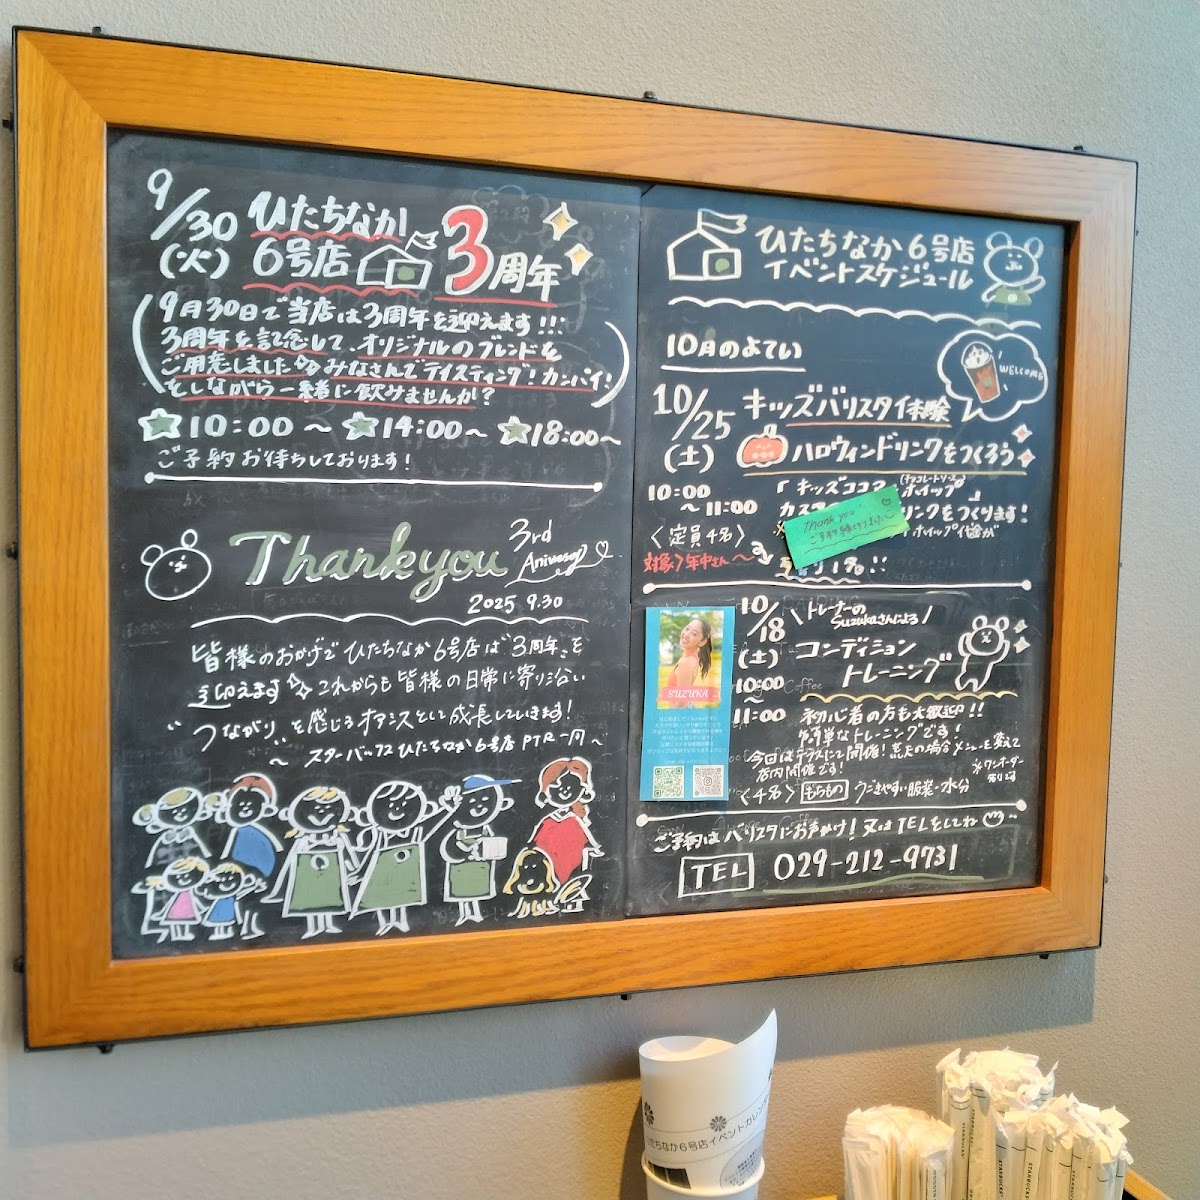 9/30
(火)
ひたちなか
6号店
3周年
9月30日で当店は3周年を迎えます!!!
3周年を記念して、オリジナルのブレンドを
ご用意しました みなさんでテイスティング!カンパイ!
をしながら一緒に飲みませんか?
☆10:00〜☆14:00〜☆18:00〜
ご予約お待ちしております!
Thank you
3rd
Anivesary
2025 9.30
皆様のおかげでひたちなか6号店は"3周年"を
迎えます これからも皆様の日常に寄り沿い
"つながり"を感じるオアシスとして成長していきます!
〜 スターバックスひたちなか6号店 PTR一同〜
ひたちなか6号店
イベントスケジュール
10月のよてい
WELCOME
10/25
(土)
キッズバリスタ体験
ハロウィンドリンクをつくろう
10:00
〜11:00
「キッズココア
ホイップ」
リンクをつくります!
Thank you!
<定員4名>
対象>年中さん〜
10/18
(土)
10:00
11:00
\トレーナーの
Suzukaさんによる/
コンディション
トレーニング
SUZUKA
初心者の方も大歓迎!!
簡単なトレーニングです!
今回はテラスにて開催!荒天の場合メニューを変えて
店内開催です!
※ワンオーダー
<4名> もちもの うごきやすい服装・水分
ご予約はバリスタにお声かけ!又はTELをしてね
TEL 029-212-9731
ひたちなか6号店イベントカレンダー
STARBUCKS
STARBUCKS
STARBUCKS